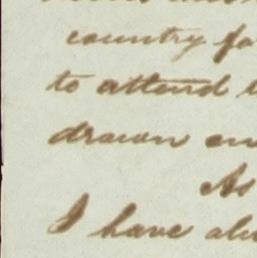 country fo
to attend t
drawn en
As
I have alw